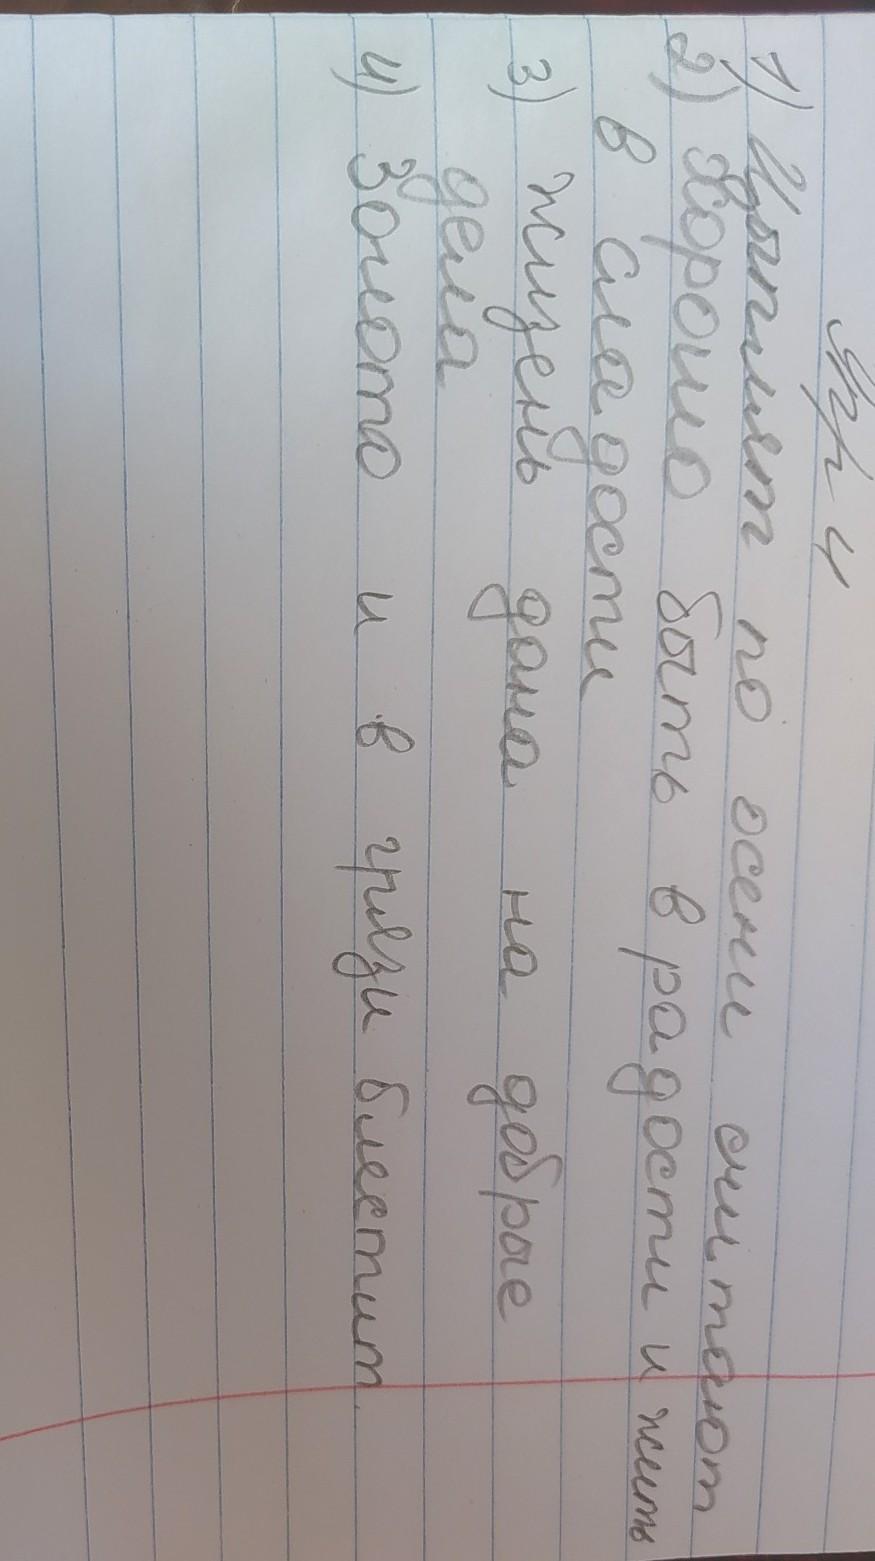 Упр 4
1) Цыплят по осени считают
2) Хорошо быть в радости и жить
в сладости
3) жизень дана на добрые
дела
4) Золото и в грязи блестит.